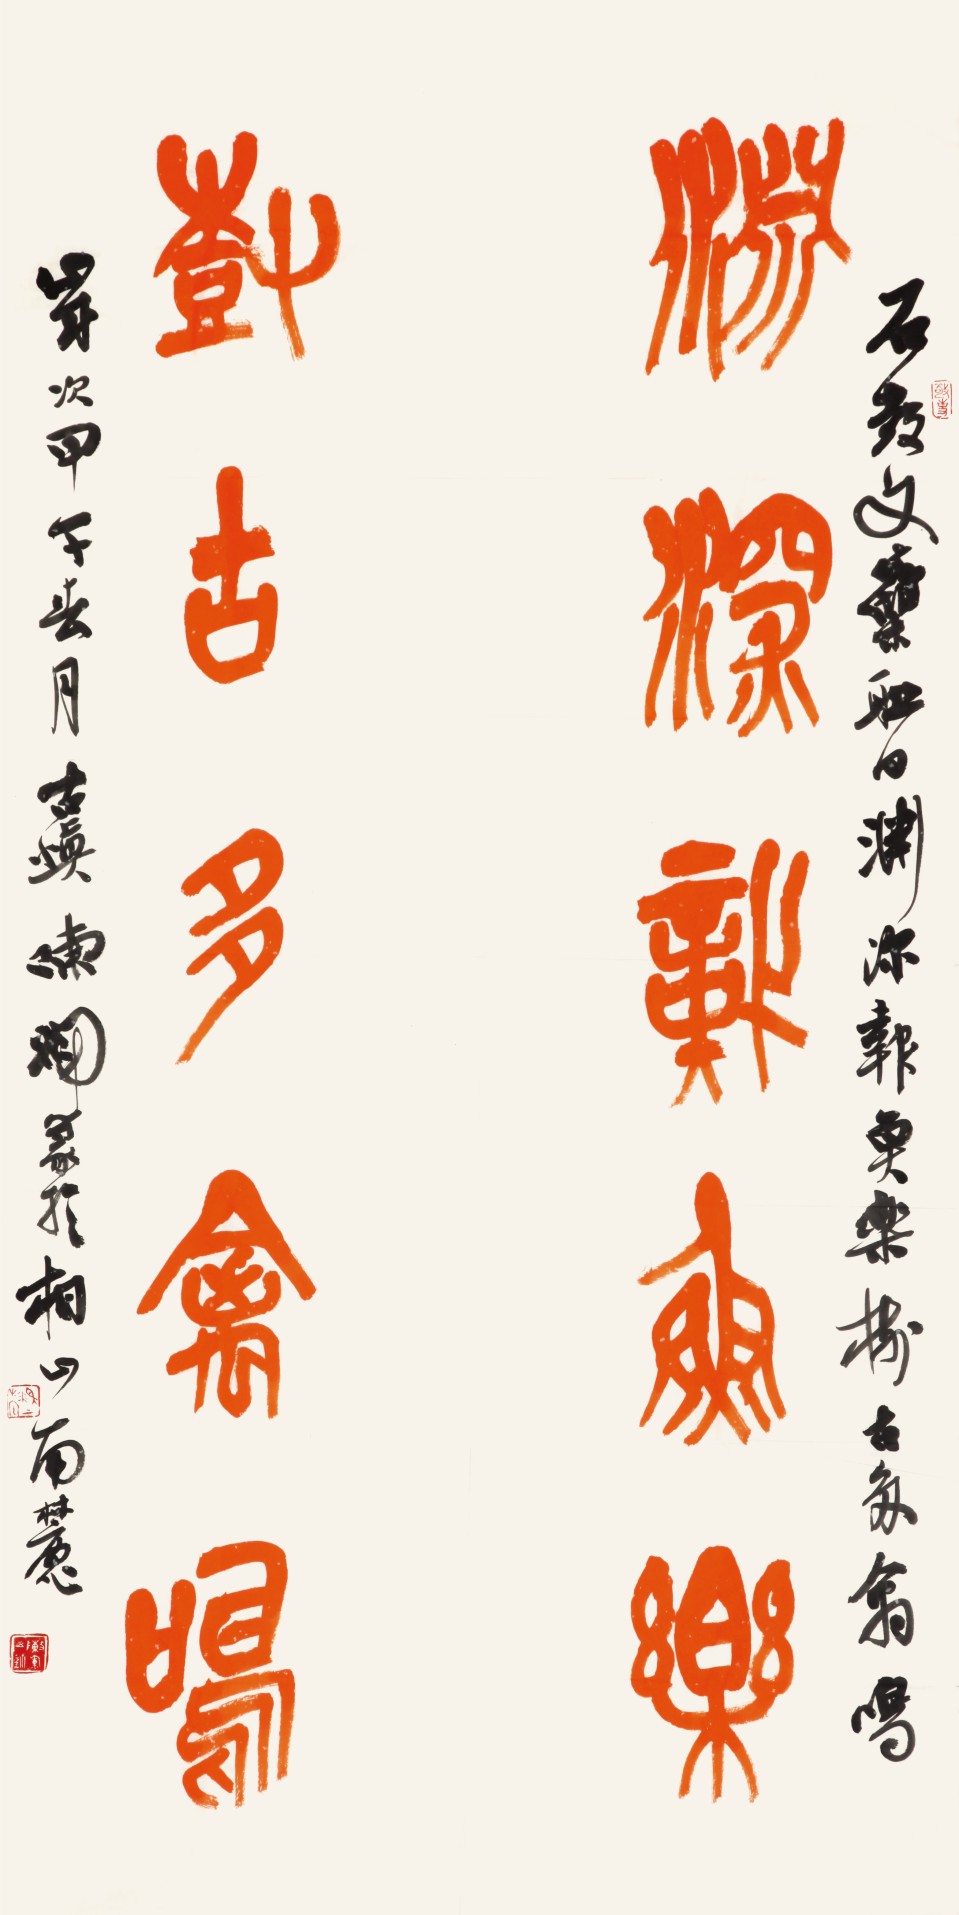 石鼓文集聯曰淵深魚樂樹古多禽鳴
淵深魚樂
樹古多禽鳴
歲次甲午春月古陳篆於相山南麓